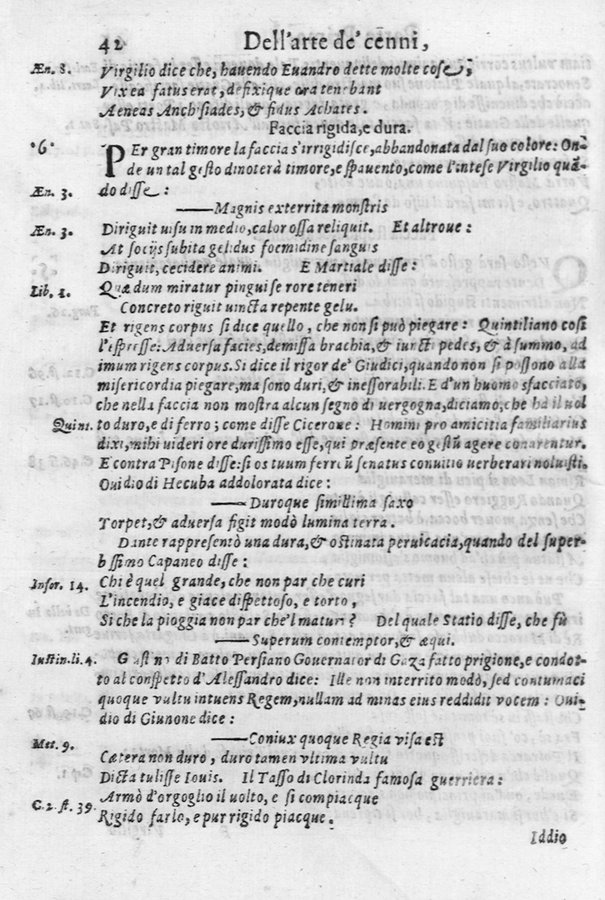 42 Dell'arte de' cenni,
Æn. 8. Virgilio dice che, hauendo Euandro dette molte cose,
Vix ea fatus erat, defixique ora tenebant
Aeneas Anchisiades, & fidus Achates.
Faccia rigida, e dura.
°6° PEr gran timore la faccia s'irrigidisce, abbandonata dal suo colore: On-
de un tal gesto dinoterà timore, e spauento, come l'intese Virgilio quã-
Æn. 3. do disse:
——Magnis exterrita monstris
Æn. 3. Diriguit uisu in medio, calor ossa reliquit. Et altroue:
At socijs subita gelidus foemidine sanguis
Diriguit, cecidere animi. E Martiale disse:
Lib. 1. Quæ dum miratur pingui se rore teneri
Concreto riguit uincta repente gelu.
Et rigens corpus si dice quello, che non si può piegare: Quintiliano così
l'espresse: Aduersa facies, demissa brachia, & iuncti pedes, & à summo, ad
imum rigens corpus. Si dice il rigor de' Giudici, quando non si possono alla
misericordia piegare, ma sono duri, & inessorabili. E d'un huomo sfacciato,
che nella faccia non mostra alcun segno di uergogna, diciamo, che ha il uol
Quint. to duro, e di ferro; come disse Cicerone: Homini pro amicitia familiarius
dixi, mihi uideri ore durissimo esse, qui præsente eo gestũ agere conarentur.
E contra Pisone disse: si os tuum ferrũ senatus conuitio uerberari noluisti.
Ouidio di Hecuba addolorata dice:
——Duroque simillima saxo
Torpet, & aduersa figit modò lumina terra.
Dante rappresentò una dura, & ostinata peruicacia, quando del super-
bissimo Capaneo disse:
Infer. 14. Chi è quel grande, che non par che curi
L'incendio, e giace dispettoso, e torto,
Si che la pioggia non par che'l maturi? Del quale Statio disse, che fù
——Superum contemptor, & æqui.
Iustin. li. 4. Giustino di Batto Persiano Gouernator di Gaza fatto prigione, e condot-
to al conspetto d'Alessandro dice: Ille non interrito modò, sed contumaci
quoque vultu intuens Regem, nullam ad minas eius reddidit vocem: Oui-
dio di Giunone dice:
——Coniux quoque Regia visa est
Met. 9. Cætera non duro, duro tamen vltima vultu
Dicta tulisse Iouis. Il Tasso di Clorinda famosa guerriera:
Armò d'orgoglio il uolto, e si compiacque
C. 2. st. 39. Rigido farlo, e pur rigido piacque.
Iddio